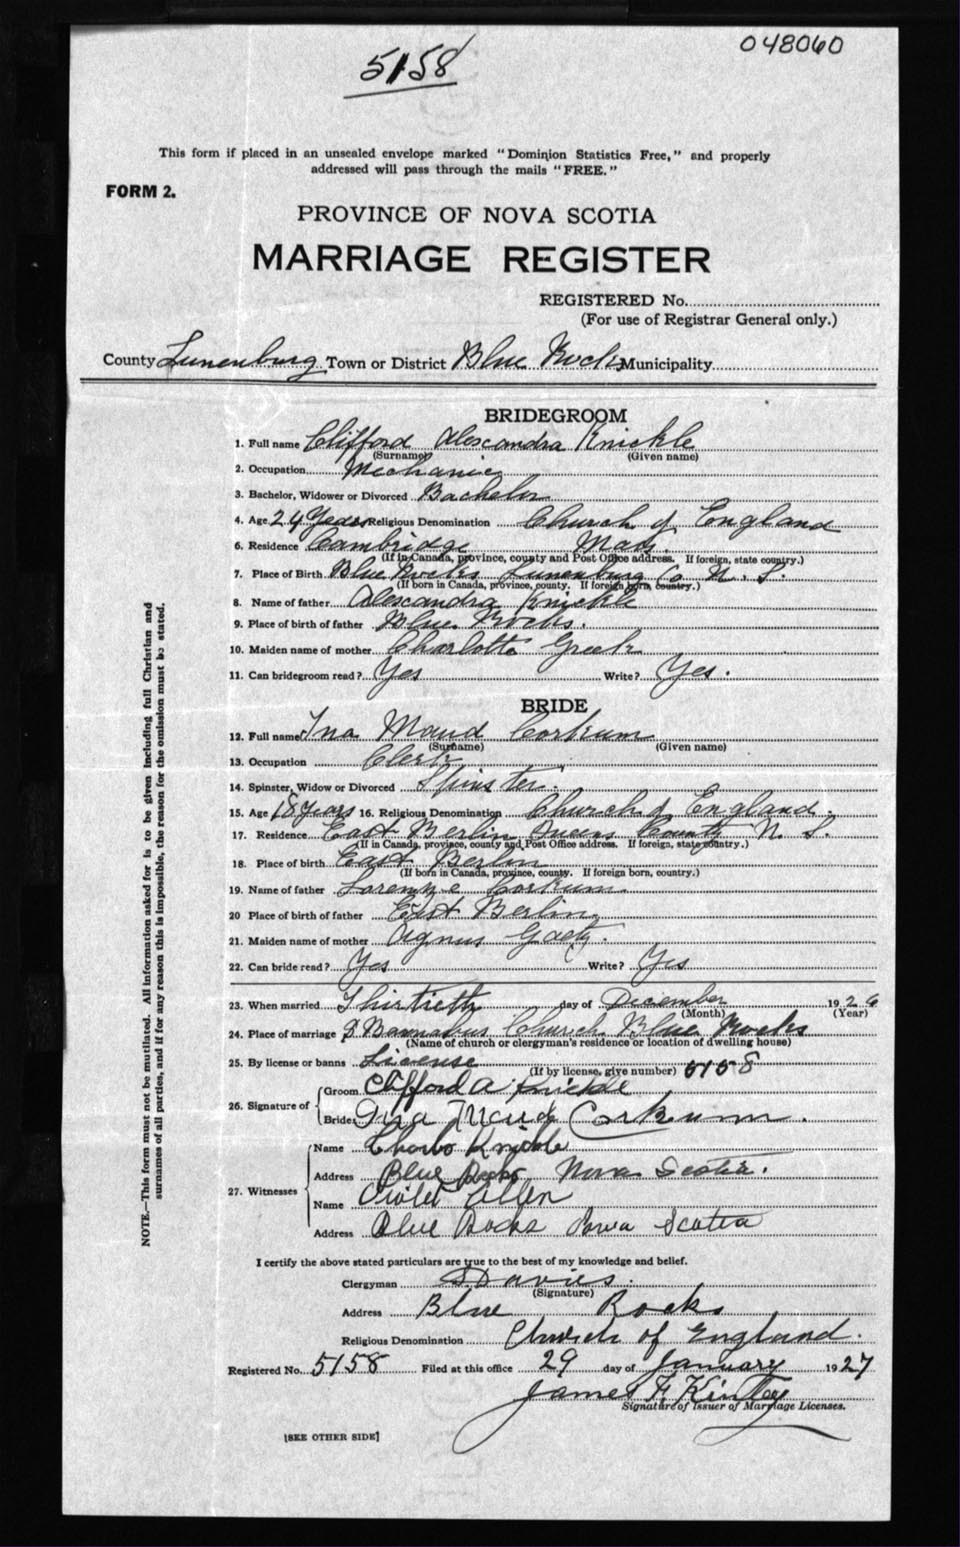 048060
5158
This form if placed in an unsealed envelope marked "Dominion Statistics Free," and properly
addressed will pass through the mails "FREE."
FORM 2.
PROVINCE OF NOVA SCOTIA
MARRIAGE REGISTER
REGISTERED No.
(For use of Registrar General only.)
County Lunenburg Town or District Blue Rocks Municipality
BRIDEGROOM
1. Full name Clifford Alexcandra Knickle
(Surname) (Given name)
2. Occupation Mechanic
3. Bachelor, Widower or Divorced Bachelor
4. Age 24 Years Religious Denomination Church of England
6. Residence Cambridge Mass.
(If in Canada, province, county and Post Office address. If foreign, state country.)
7. Place of Birth Blue Rocks Lunenburg Co N. S.
(If born in Canada, province, county. If foreign born, country.)
8. Name of father Alexcandra Knickle
9. Place of birth of father Blue Rocks.
10. Maiden name of mother Charlotte Greek
11. Can bridegroom read? Yes Write? Yes.
BRIDE
12. Full name Ina Maud Corkum
(Surname) (Given name)
13. Occupation Clerk
14. Spinster, Widow or Divorced Spinster.
15. Age 18 years 16. Religious Denomination Church of England.
17. Residence East Berlin Queens County N. S.
(If in Canada, province, county and Post Office address. If foreign, state country.)
18. Place of birth East Berlin
(If born in Canada, province, county. If foreign born, country.)
19. Name of father Corkum
20 Place of birth of father East Berlin
21. Maiden name of mother Agnus Gaetz.
22. Can bride read? Yes Write? Yes
23. When married Thirtieth day of December 1926
(Month) (Year)
24. Place of marriage S Barnabus Church Blue Rocks
(Name of church or clergyman's residence or location of dwelling house)
25. By license or banns License (If by license, give number) 5158
26. Signature of Groom Clifford A Knickle
Bride Ina Maude Corkum.
27. Witnesses Name Knickle
Address Blue Rocks Nova Scotia.
Name Violet Allen
Address Blue Rocks Nova Scotia
I certify the above stated particulars are true to the best of my knowledge and belief.
Clergyman Davies.
(Signature)
Address Blue Rocks
Religious Denomination Church of England.
Registered No. 5158 Filed at this office 29 day of January 1927
James F. Kinley
Signature of Issuer of Marriage Licenses.
[SEE OTHER SIDE]
NOTE.—This form must not be mutilated. All information asked for is to be given including full Christian and
surnames of all parties, and if for any reason this is impossible, the reason for the omission must be stated.